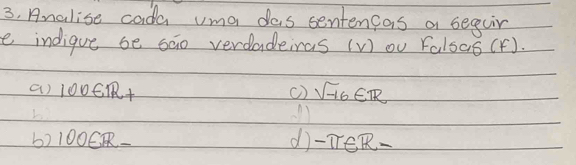 3. Analise cada uma das sentenças a seguir
e indique se são verdadeiras (V) ou Falsas (F).
a) 100 ∈ ℝ+
c) √-16 ∈ ℝ
b) 100 ∈ ℝ-
d) -π ∈ ℝ-